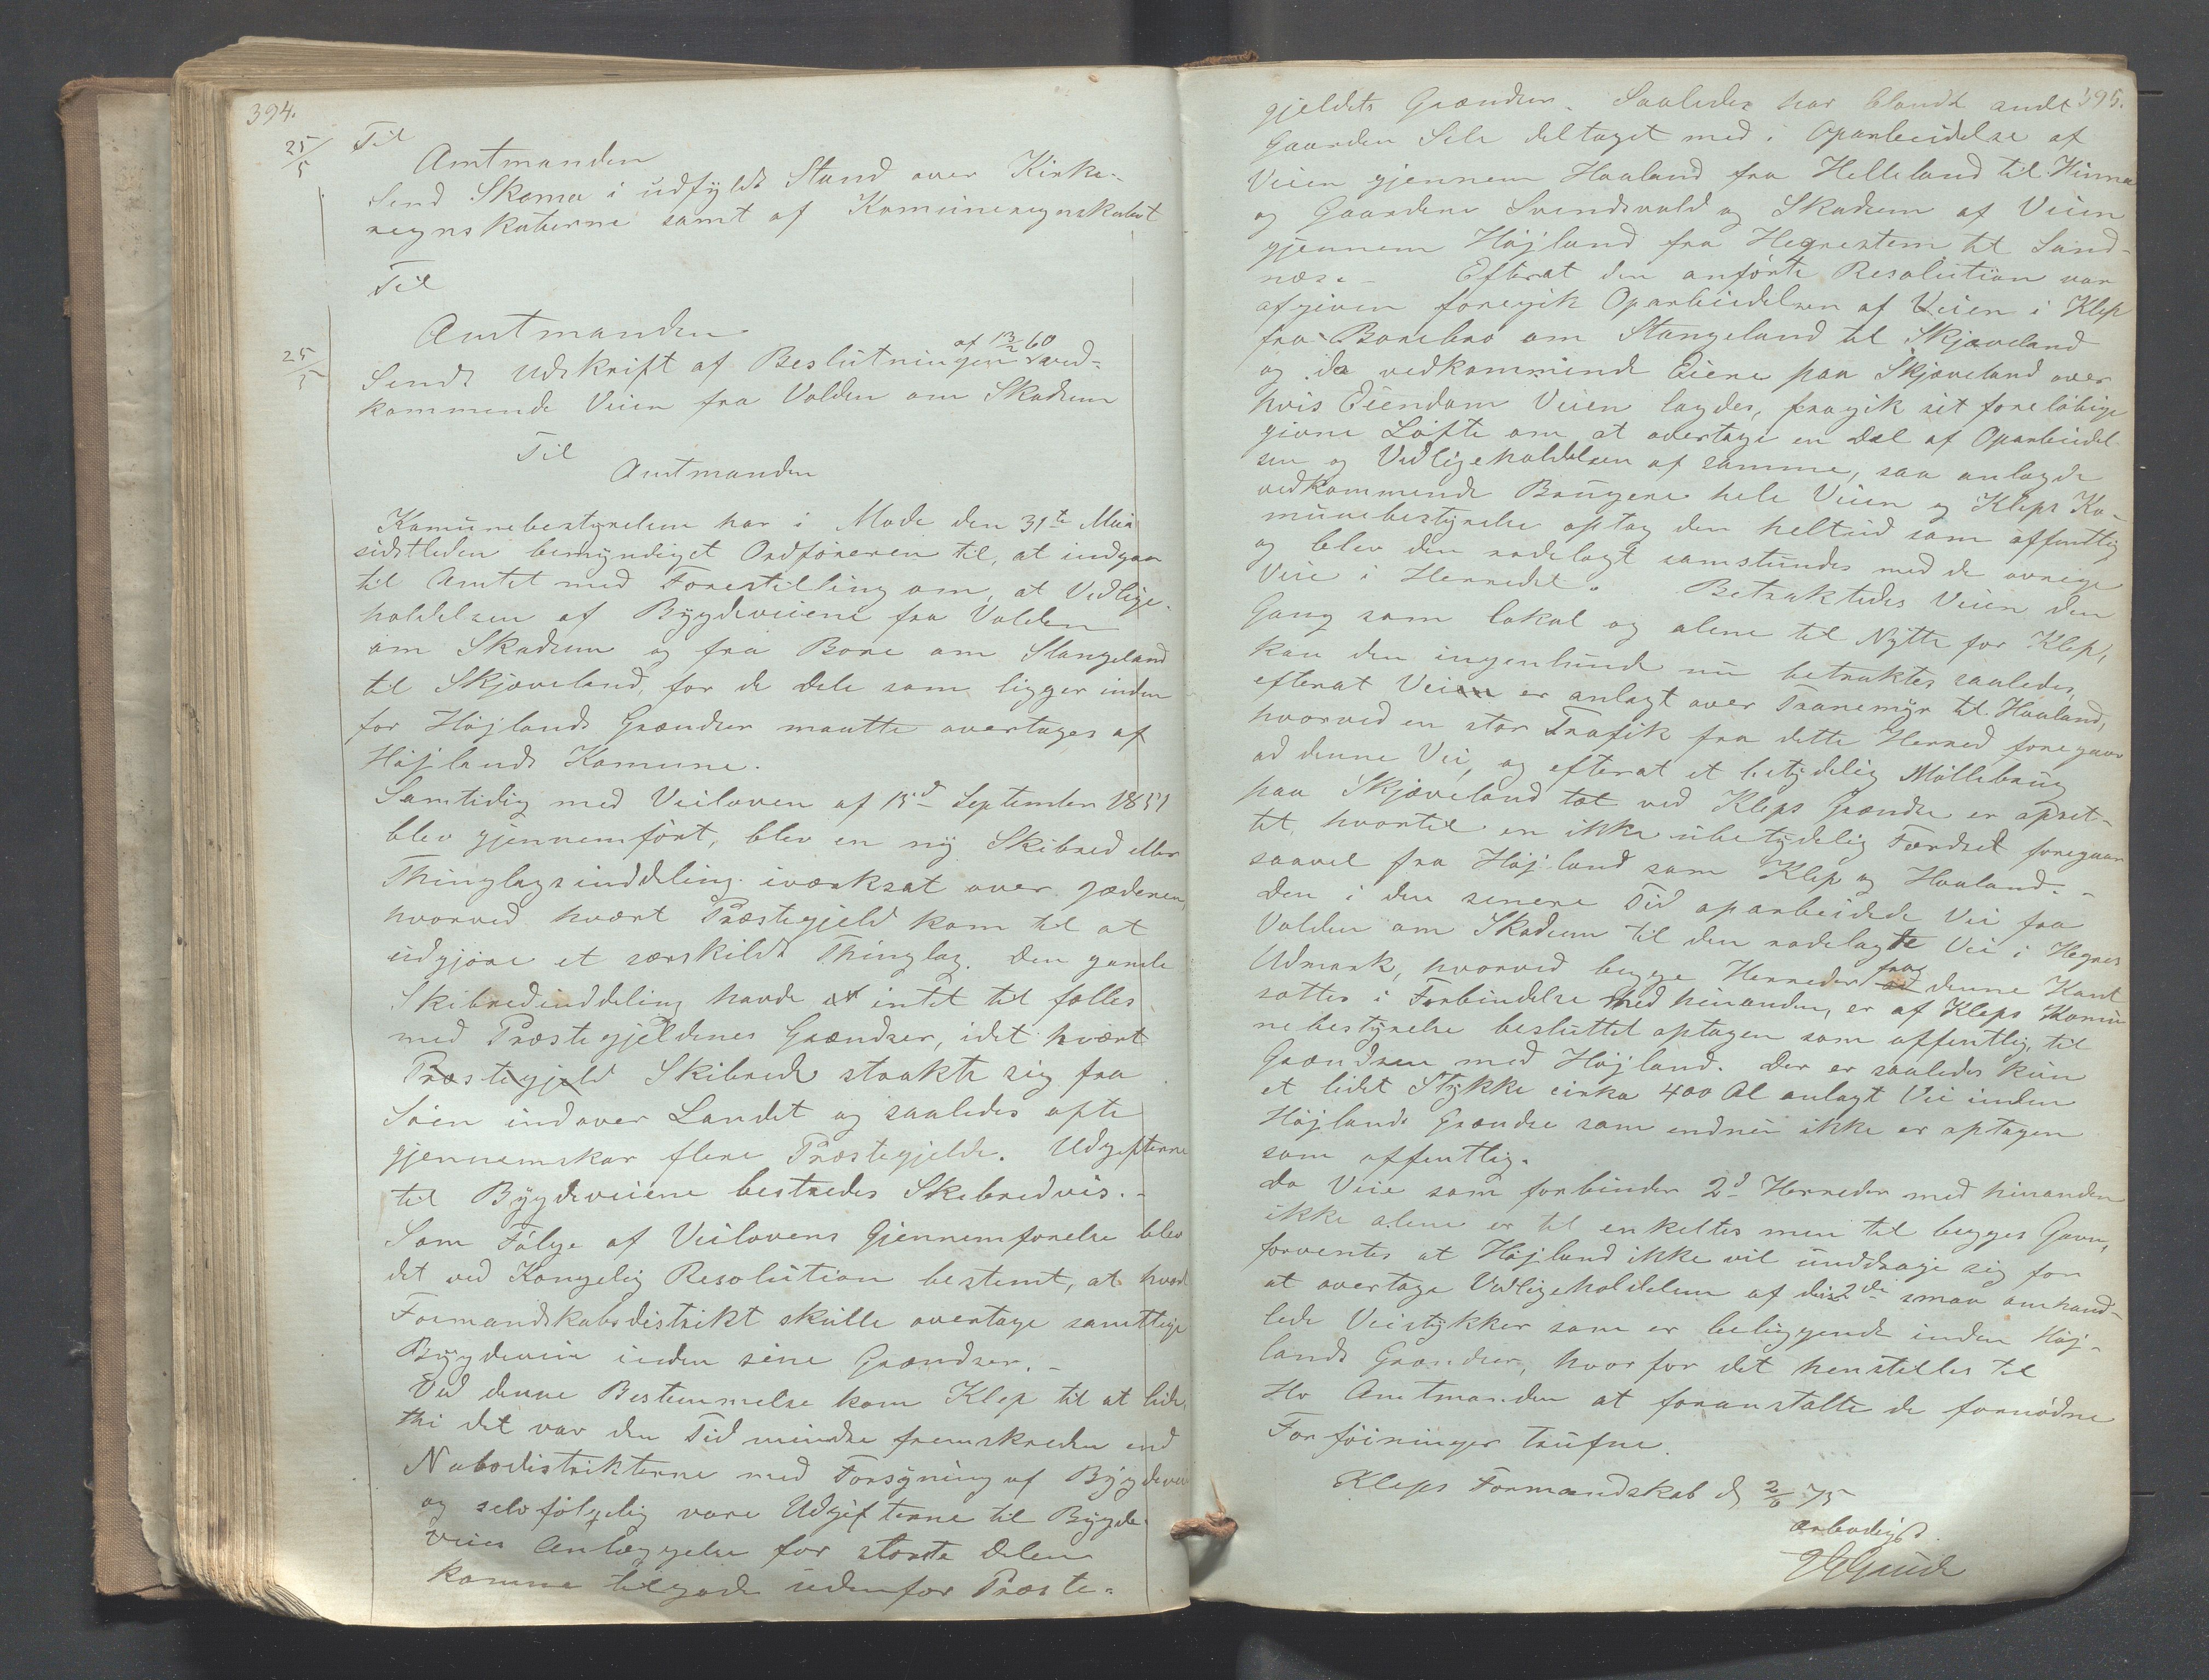 394.
25/5 Til
Amtmanden
Send Skema i udfyldt Stand over Kirke-
regnskaberne samt af Komuneregnskabet
Til
Amtmanden
25/5 Sendt Udskrift af Beslutningen af 13/2 60 ved-
kommende Veien fra Volden om Skadsem
Til
Amtmanden
Komunebestyrelsen har i Mode den 31te Mai
sidstleden bemyndiget Ordföreren til, at indgaa
til Amtet med Forestilling om, at Vedlige-
holdelsen af Bygdeveiene fra Volden
om Skadsem og fra Bore om Stangeland
til Skjæveland, for de Dele som ligger inden
for Höjlands Grændser maatte overtages af
Höjlands Komune.
Samtidig med Veiloven af 15d September 1851
blev gjennemfört, blev en ny Skibred eller
Thinglagsinddeling iværksat over Jæderen,
hvorved hvært Præstegjeld kom til at
udgjöre et særskildt Thinglag. Den gamle
Skibredinddeling havde at intet til falles
med Præstegjeldenes Grændser, idet hvært
Præstegjeld Skibrede strakte sig fra
Söen indover Landet og saaledes ofte
gjennemskar flere Præstegjelde. Udgifterne
til Bygdeveiene bestredes Skibredvis.-
Som Fölge af Veilovens Gjennemförelse blev
det ved Kongelig Resolution bestemt, at hvært
Formandskabsdistrikt skulle overtage samtlige
Bygdeveie inden sine Grændser.-
Ved denne Bestemmelse kom Klep til at lide,
thi det var den Tid mindre fremskreden end
Nabodistrikterne med Forsyning af Bygdeveie
og selvfölgelig vare Udgifterne til Bygde-
veies Anlæggelse for storste Delen
komne tilgode udenfor Præste-
395.
gjeldets Grændser. Saaledes har blandt andt
Gaarden Sele deltaget med i Oparbeidelse af
Veien gjennem Haaland fra Helleland til Hinna
og Gaardene Svendsvold og Skadsem af Veien
gjennem Höjland fra Hegrestem til Sand-
næs.- Efterat den anförte Resolution var
afgiven foregik Oparbeidelsen af Veien i Klep
fra Borebro om Stangeland til Skjæveland
og da vedkommende Eiere paa Skjæveland over
hvis Eiendom Veien lagdes, fragik sit forelöbige
givne Löfte om at overtage en Del af Oparbeidel-
sen og Vedligeholdelsen af samme, saa anlagde
vedkommende Brugere hele Veien og Kleps Ko-
munebestyrelse optog den heltud som offentlig
og blev den rodelagt samstundes med de ovrige
Veie i Herredet. Betraktedes Veien den
Gang som lokal og alene til Nytte for Klep,
kan den ingenlunde nu betraktes saaledes,
efterat Veien er anlagt over Tranemyr til Haaland,
hvorved en stor Trafik fra dette Herred foregaar
ad denne Vei, og efterat et betydelig Möllebrug
paa Skjæveland tæt ved Kleps Grændse er opret-
tet hvortil en ikke ubetydelig Færdsel foregaar
saavel fra Höjland som Klep og Haaland.-
Den i den senere Tid oparbeidede Vei fra
Volden om Skadsem til den rodelagte Vei i Hegres
Udmark, hvorved begge Herreder fra denne Kant
sættes i Forbindelse med hinanden, er af Kleps Komu
nebestyrelse besluttet optagen som offentlig, til
Grændsen med Höjland. Der er saaledes kun
et lidet Stykke cirka 400 Al anlagt Vei inden
Höjlands Grændse som endnu ikke er optagen
som offentlig.
Da Veie som forbinder 2d Herreder med hinanden
ikke alene er til enkeltes men til begges Gavn,
forventes at Höjland ikke vil unddrage sig for
at overtage Vedligeholdelsen af disse 2de smaa omhand-
lede Veistykker som er beliggende inden Höj-
lands Grændser, hvorfor det henstilles til
Hr Amtmanden at foranstalte de fornödne
Forföininger trufne.
Kleps Formandskab d 2/6 75
ærbodigst